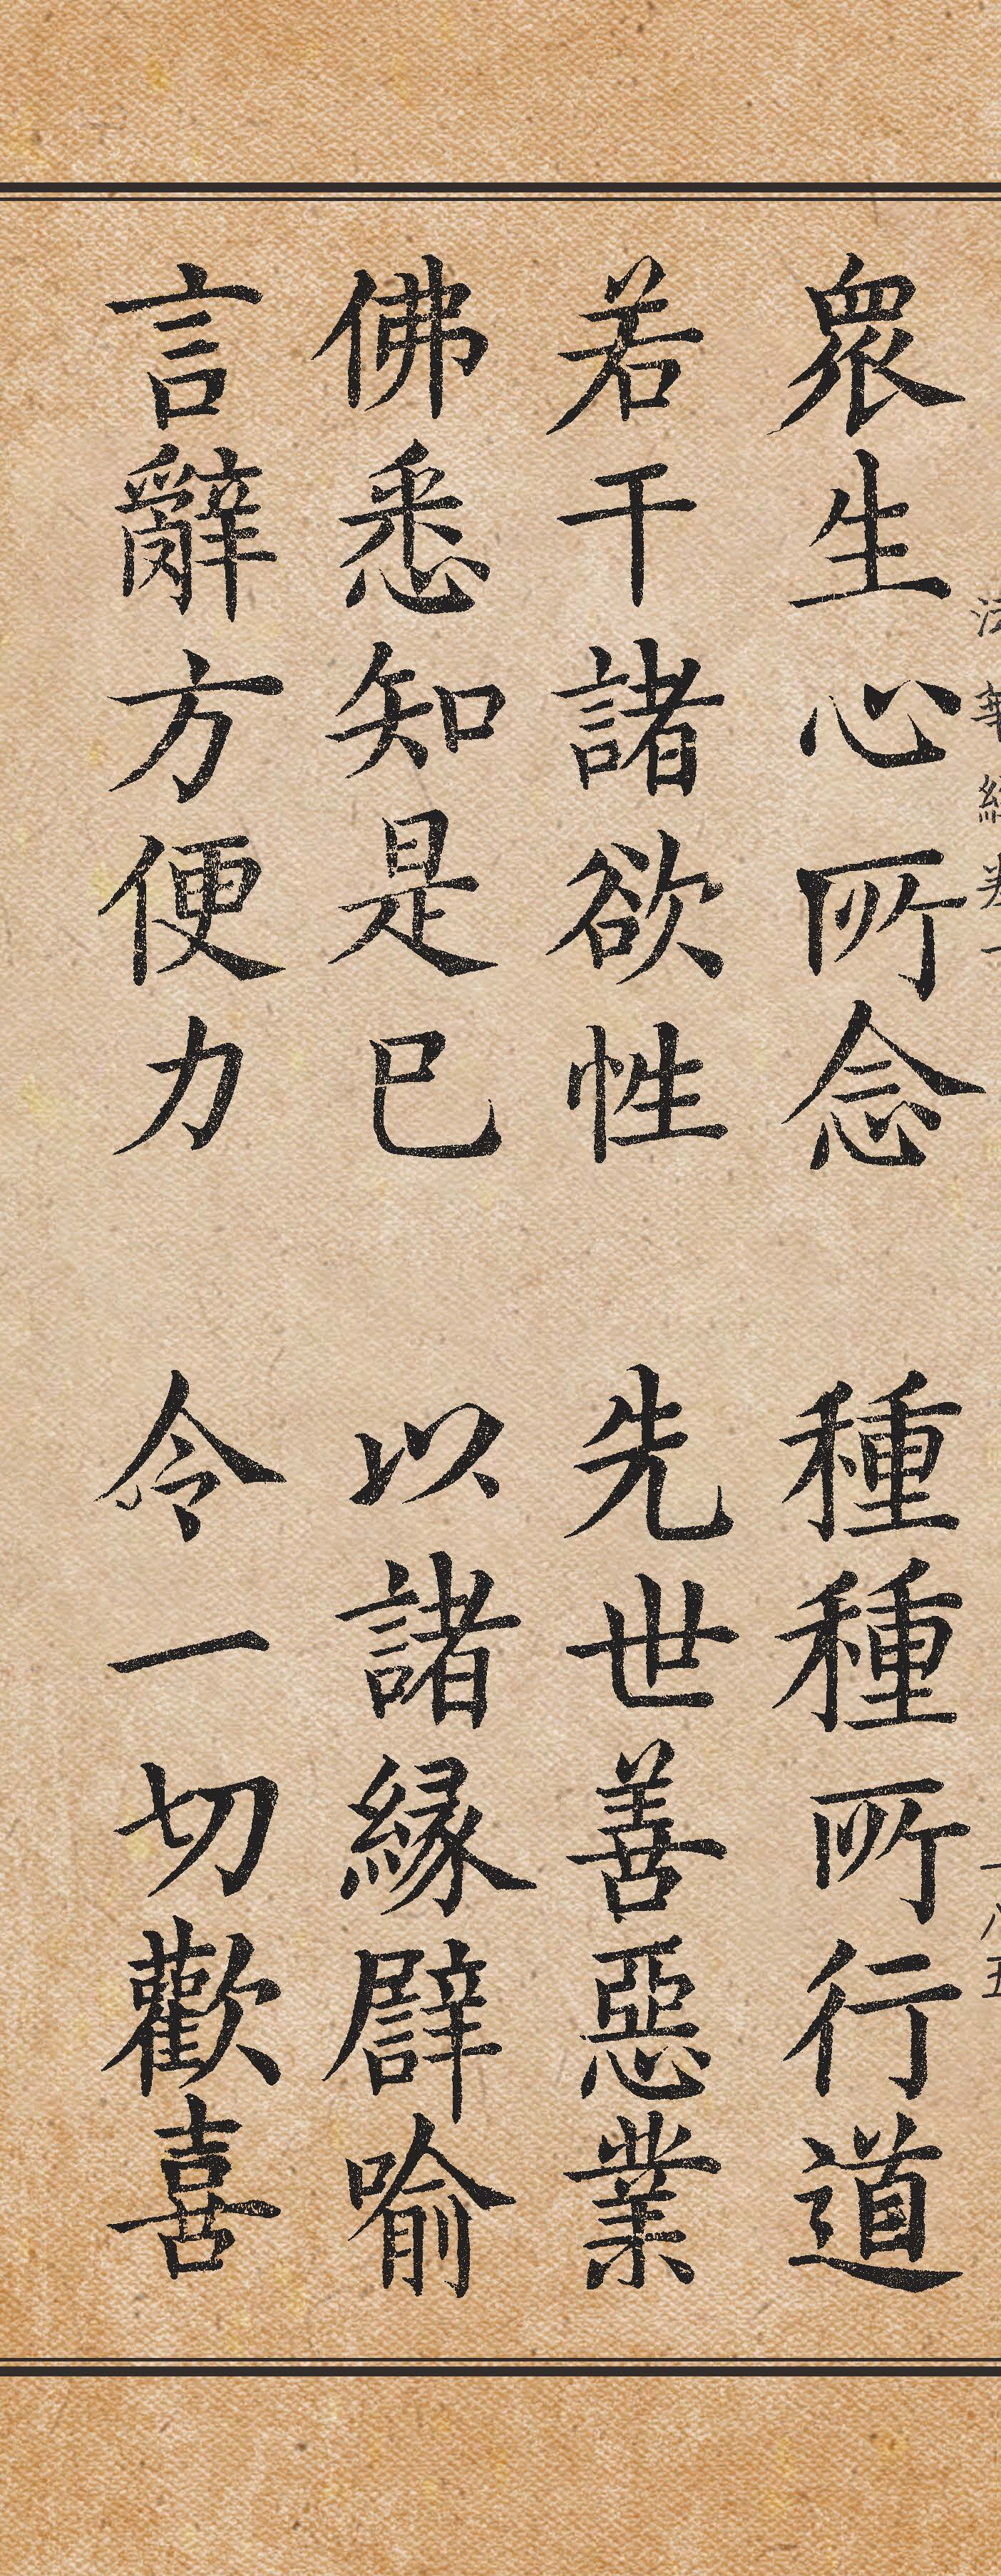 衆生心所念　種種所行道
若干諸欲性　先世善惡業
佛悉知是已　以諸縁譬喻
言辭方便力　令一切歡喜